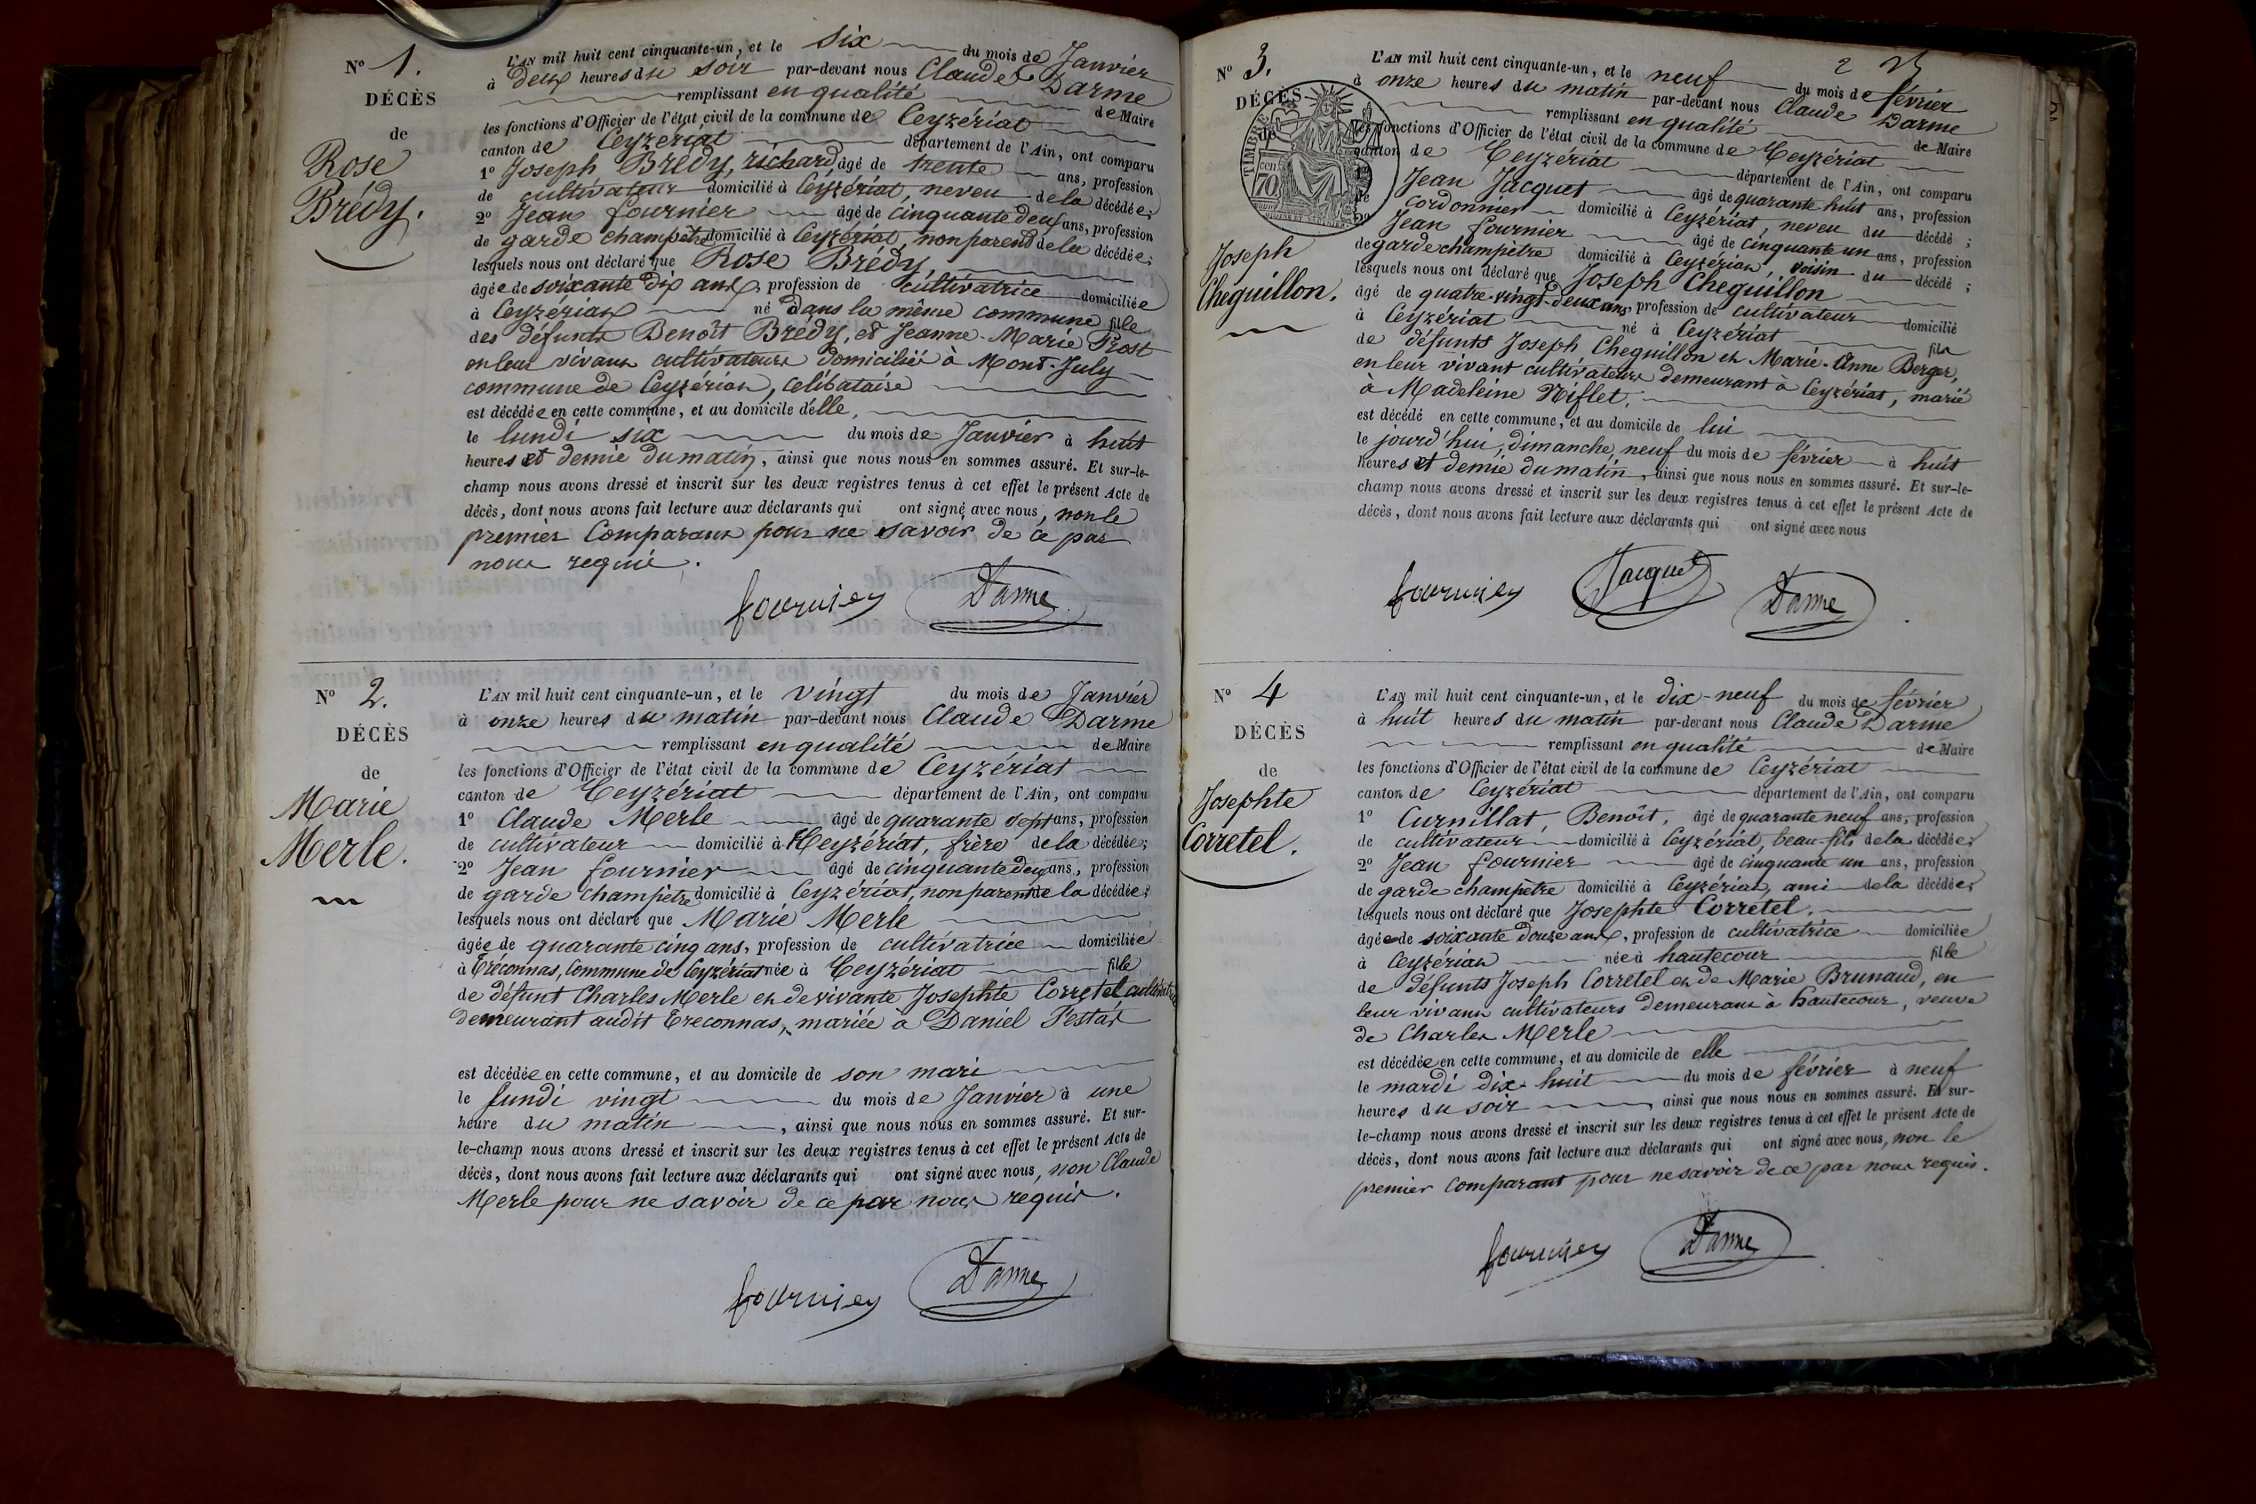 N° 1.
DÉCÈS
de
Rose
Brédy.
L'AN mil huit cent cinquante-un, et le six du mois de Janvier
à deux heures du soir par-devant nous Claude Darme
remplissant en qualité de Maire
les fonctions d'Officier de l'état civil de la commune de Ceyzériat
canton de Ceyzériat département de l'Ain, ont comparu
1° Joseph Brédy, richard âgé de trente ans, profession
de cultivateur domicilié à Ceyzériat, neveu de la décédée;
2° Jean fournier âgé de cinquante deux ans, profession
de garde champêtre domicilié à Ceyzériat, non parent de la décédée;
lesquels nous ont déclaré que Rose Brédy,
âgée de soixante dix ans, profession de cultivatrice domiciliée
à Ceyzériat né dans la même commune fille
des défunts Benoît Brédy, et Jeanne-Marie Rost
en leur vivant cultivateurs domiciliés à Mont-July
commune de Ceyzériat, célibataire
est décédée en cette commune, et au domicile d'elle,
le lundi six du mois de Janvier à huit
heures et demie du matin, ainsi que nous nous en sommes assuré. Et sur-le-
champ nous avons dressé et inscrit sur les deux registres tenus à cet effet le présent Acte de
décès, dont nous avons fait lecture aux déclarants qui ont signé avec nous, non le
premier Comparant pour ne savoir de ce par
nous requis.
fournier Darme
N° 2.
DÉCÈS
de
Marie
Merle.
L'AN mil huit cent cinquante-un, et le vingt du mois de Janvier
à onze heures du matin par-devant nous Claude Darme
remplissant en qualité de Maire
les fonctions d'Officier de l'état civil de la commune de Ceyzériat
canton de Ceyzériat département de l'Ain, ont comparu
1° Claude Merle âgé de quarante sept ans, profession
de cultivateur domicilié à Ceyzériat, frère de la décédée;
2° Jean fournier âgé de cinquante deux ans, profession
de garde champêtre domicilié à Ceyzériat, non parent de la décédée;
lesquels nous ont déclaré que Marie Merle
âgée de quarante cinq ans, profession de cultivatrice domiciliée
à Tréconnas, Commune de Ceyzériat née à Ceyzériat fille
de défunt Charles Merle et de vivante Josephte Corretel cultivatrice
demeurant audit Treconnas, mariée à Daniel Pestat
est décédée en cette commune, et au domicile de son mari
le lundi vingt du mois de Janvier à une
heure du matin, ainsi que nous nous en sommes assuré. Et sur-
le-champ nous avons dressé et inscrit sur les deux registres tenus à cet effet le présent Acte de
décès, dont nous avons fait lecture aux déclarants qui ont signé avec nous, non Claude
Merle pour ne savoir de ce par nous requis.
fournier Darme
2
N° 3.
DÉCÈS
de
TIMBRE
70
Joseph
Cheguillon.
L'AN mil huit cent cinquante-un, et le neuf du mois de février
à onze heures du matin par-devant nous Claude Darme
remplissant en qualité de Maire
les fonctions d'Officier de l'état civil de la commune de Ceyzériat
canton de Ceyzériat département de l'Ain, ont comparu
Jean Jacquet âgé de quarante huit ans, profession
de cordonnier domicilié à Ceyzériat, neveu du décédé;
2° Jean fournier âgé de cinquante un ans, profession
de garde champêtre domicilié à Ceyzériat, voisin du décédé;
lesquels nous ont déclaré que Joseph Cheguillon
âgé de quatre-vingt-deux ans, profession de cultivateur domicilié
à Ceyzériat né à Ceyzériat fils
de défunts Joseph Cheguillon et Marie-Anne Berger,
en leur vivant cultivateurs demeurant à Ceyzériat, marié
à Madeleine Niflet.
est décédé en cette commune, et au domicile de lui
le jourd'hui, dimanche, neuf du mois de février à huit
heures et demie du matin, ainsi que nous nous en sommes assuré. Et sur-le-
champ nous avons dressé et inscrit sur les deux registres tenus à cet effet le présent Acte de
décès, dont nous avons fait lecture aux déclarants qui ont signé avec nous
fournier Jacquet Darme
N° 4
DÉCÈS
de
Josephte
Corretel.
L'AN mil huit cent cinquante-un, et le dix-neuf du mois de février
à huit heures du matin par-devant nous Claude Darme
remplissant en qualité de Maire
les fonctions d'Officier de l'état civil de la commune de Ceyzériat
canton de Ceyzériat département de l'Ain, ont comparu
1° Curnillat, Benoît, âgé de quarante neuf ans, profession
de cultivateur domicilié à Ceyzériat, beau-fils de la décédée;
2° Jean fournier âgé de cinquante un ans, profession
de garde champêtre domicilié à Ceyzériat, ami de la décédée;
lesquels nous ont déclaré que Josephte Corretel,
âgée de soixante douze ans, profession de cultivatrice domiciliée
à Ceyzériat née à hautecour fille
de défunts Joseph Corretel et de Marie Brunaud, en
leur vivant cultivateurs demeurant à hautecour, veuve
de Charles Merle
est décédée en cette commune, et au domicile de elle
le mardi dix-huit du mois de février à neuf
heures du soir, ainsi que nous nous en sommes assuré. Et sur-
le-champ nous avons dressé et inscrit sur les deux registres tenus à cet effet le présent Acte de
décès, dont nous avons fait lecture aux déclarants qui ont signé avec nous, non le
premier comparant pour ne savoir de ce par nous requis.
fournier Darme